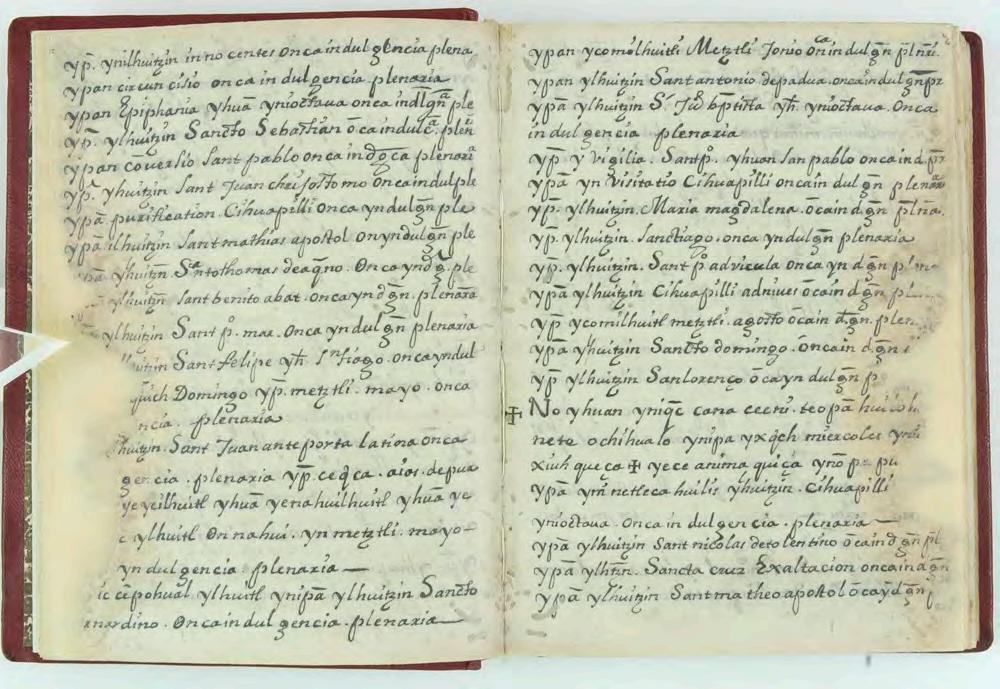 yp̄. ynilhuitzin in no centes onca indulgencia plena
ypan circuncisio onca in dulgencia. plenaria
ypan Epiphania yhuā ynioctaua onca indlgn̄ᵃ ple
yp̄. ylhuitzin Sancto Sebastian ōca indulc̄ᵃ. plen̄
ypan cōversio Sant pablo onca in ca plenari
yp̄. yhuitzin Sant Juan onca indulple
ypā. purification. Cihuapilli onca yndulgn̄ ple
ypā ilhuitzin Sant mathias apostol on yndulgn̄ ple
yhuitzn̄ Sāntothomas deaq̄no. Onca ynd ple
ylhuitzn̄ Sant benito abat. onca yn dgn̄. plenāra
ylhuitzin Sant p̄. mar. Onca yn dulgn̄ plenaria
Sant felipe yh̄. onca yndul
Domingo yp̄. metztli. mayo. onca
ncia. plenaria
huitzin. Sant Juan ante porta latina onca
gencia. plenaria yp̄. depua
ye yeilhuitl yhuā ye nahuilhuitl yhuā ye
ylhuitl On nahui. yn metztli. mayo
yn dulgencia plenaria
ic cēpohual ylhuitl ynipā ylhuitzin Sancto
nardino. Onca in dulgencia. plenaria
ypan ycomilhuitl Metztli Jonio ōnca in dulgn̄ pln̄ri.
ypan ylhuitzin Sant antonio depadua. onca indulgn̄pr
ypā ylhuitzin S. Juº bp̄tista yh̄. ynioctaua. Onca
in dulgencia plenaria
yp̄ y vigilia. Santp̄º. yhuan San pablo onca ind. pr̄
ypā yn visitatio Cihuapilli onca in dulgn̄ plenāra
yp̄. ylhuitzin. Maria magdalena. ōca in dgn̄ pln̄a.
yp̄. ylhuitzin. Sanctiago. onca yndulgn̄ plenaria
yp̄. ylhuitzin. Sant p̄º advicula onca yn dgn̄
ypā ylhuitzin Cihuapilli adnives ōca in dgn̄ pl
yp̄ ycomilhuitl metztli. agosto ōca in dgn̄. plen
ypā ylhuitzin Sancto domingo. ōnca in. dgn̄
yp̄ ylhuitzin San lorenço ōca yn dulgn̄ p
✠ No yhuan yniqc̄ cana cecni. teopā
nete ochihualo ynipa miercoles
xiuh que ça ✠ yece anima quiça
ypā ym̄ netlecahuilis yhuitzin. Cihuapilli
ynioctaua. Onca in dulgencia. plenaria
ypā ylhuitzin Sant nicolas detolentino ōca in dgn̄ pl
ypā ylhtzn̄. Sancta cruz Exaltacion onca in dgn̄
ypā ylhuitzin Sant matheo apostol ōca ȳdgn̄